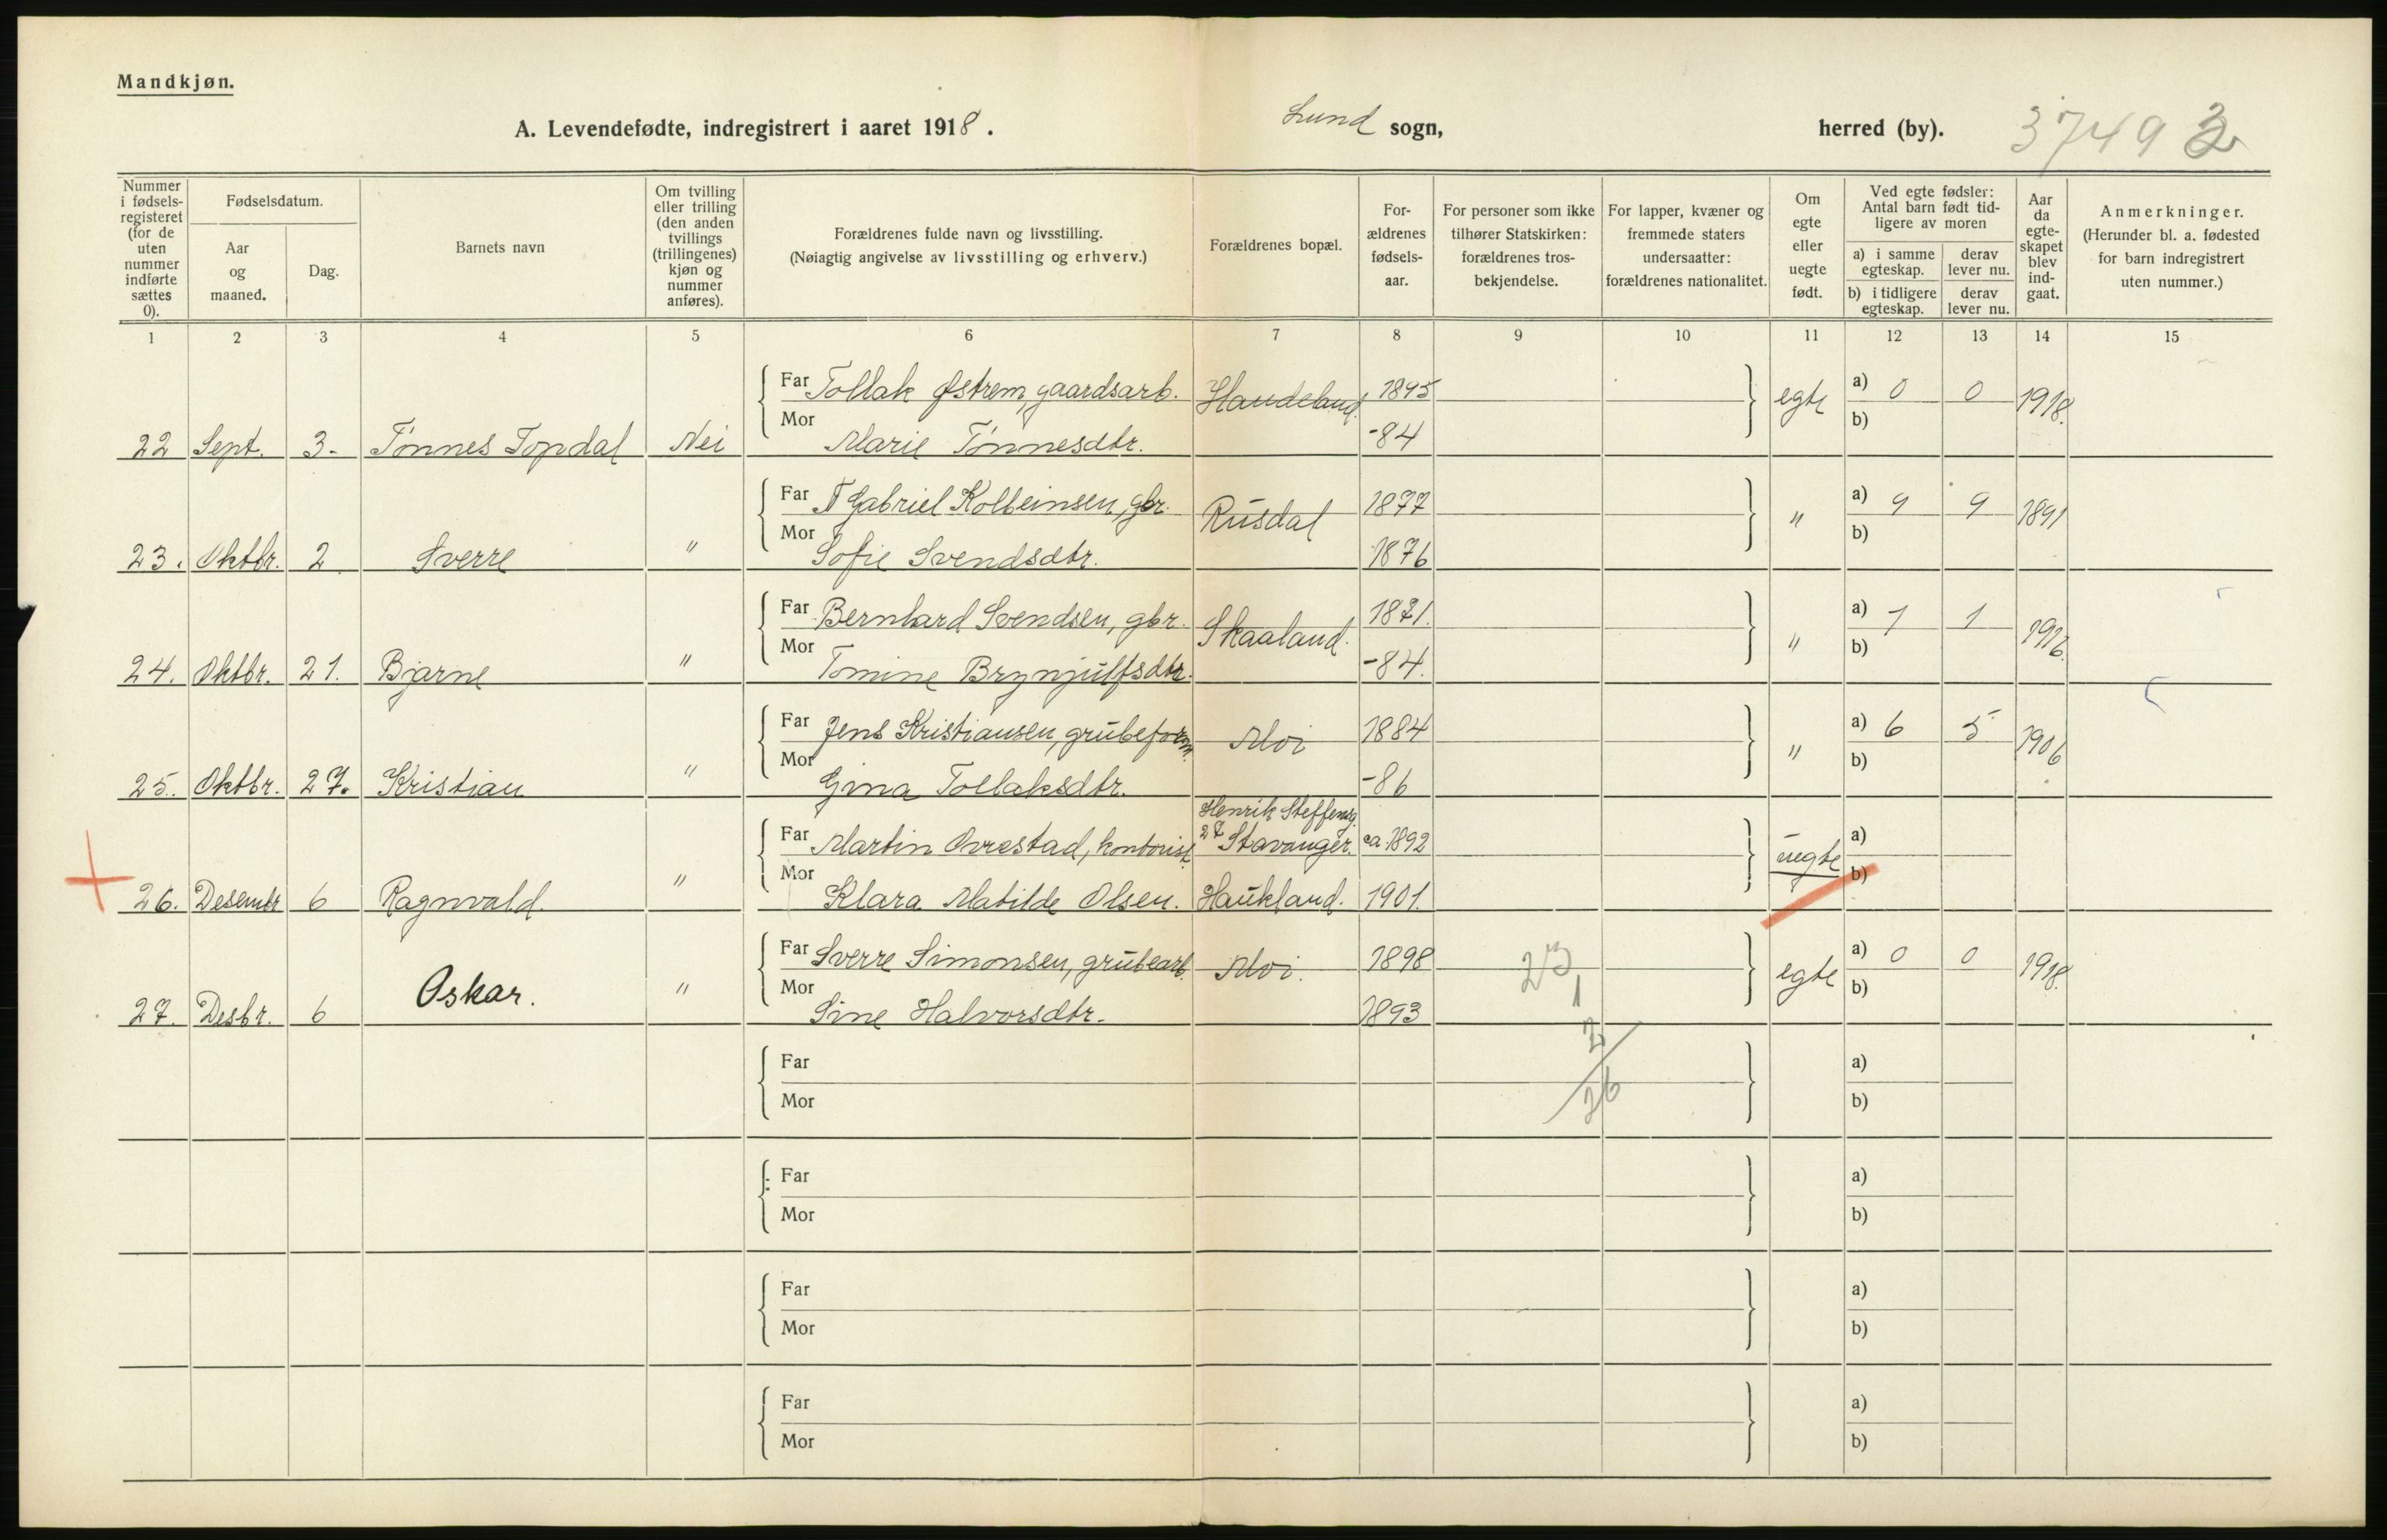 Mandkjøn.
A. Levendefødte, indregistrert i aaret 1918. Lund sogn, herred (by). 3749 2
Nummer i fødsels-registeret (for de uten nummer indførte sættes 0).
Fødselsdatum.
Aar og maaned.
Dag.
Barnets navn
Om tvilling eller trilling (den anden tvillings (trillingenes) kjøn og nummer anføres).
Forældrenes fulde navn og livsstilling.
(Nøiagtig angivelse av livsstilling og erhverv.)
Forældrenes bopæl.
For-ældrenes fødsels-aar.
For personer som ikke tilhører Statskirken: forældrenes tros-bekjendelse.
For lapper, kvæner og fremmede staters undersaatter: forældrenes nationalitet.
Om egte eller uegte født.
Ved egte fødsler: Antal barn født tid-ligere av moren
a) i samme egteskap. derav lever nu.
b) i tidligere egteskap. derav lever nu.
Aar da egte-skapet blev ind-gaat.
Anmerkninger.
(Herunder bl. a. fødested for barn indregistrert uten nummer.)
1 2 3 4 5 6 7 8 9 10 11 12 13 14 15
Far Tollak Østrem, gaardsarb. Haudeland. 1895 egte a) 0 0 1918.
Mor b)
22 Sept. 3. Tönnes Topdal Nei Marie Tönnesdtr. -84
Far Gabriel Kolbeinsen, gbr. Rusdal 1877 " a) 9 9 1891
Mor b)
23. Oktbr. 2 Sverre " Sofie Svendsdtr. 1876
Far Bernhard Svendsen, gbr. Skaaland. 1871. " a) 1 1 1916.
Mor b)
24. Oktbr. 21. Bjarne " Tomine Brynjulfsdtr. -84.
Far Jens Kristiansen, grubeform. Moi 1884 " a) 6 5 1906
Mor b)
25. Oktbr. 27. Kristian " Gina Tollaksdtr. -86
Henrik Steffensg.
Far Martin Ovrestad, kontorist 27 Stavanger. ca. 1892 uegte a)
Mor b)
26. Desembr 6 Ragnvald. " Klara Matilde Olsen. Haukland. 1901.
Far Sverre Simonsen, grubearb. Moi. 1898 23 egte a) 0 0 1918.
Mor 1 b)
27. Desbr. 6 Oskar. " Sine Halvorsdtr. 1893
2
Far a)
Mor 26 b)
Far a)
Mor b)
Far a)
Mor b)
Far a)
Mor b)